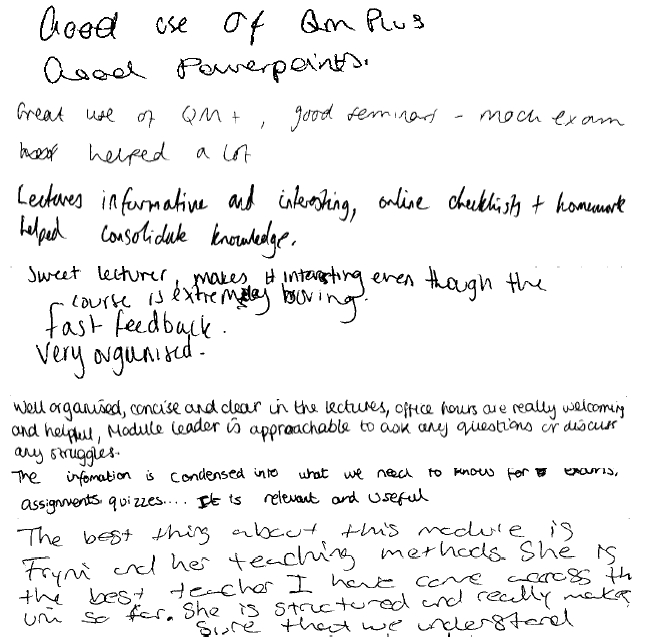 Good use of Qm Plus
Good Powerpoints.
Great use of QM+, good seminars - mock exam
helped a lot
Lectures informative and interesting, online checklists + homework
helped consolidate knowledge.
Sweet lecturer, makes it interesting even though the
course is extremely boring.
fast feedback.
Very organised.
Well organised, concise and clear in the lectures, office hours are really welcoming
and helpful, Module leader is approachable to ask any questions or discuss
any struggles.
The infomation is condensed into what we need to know for exams,
assignments quizzes.... It is relevant and useful
The best thing about this module is
Fryni and her teaching methods. She is
the best teacher I have come across th
uni so far. She is structured and really makes
sure that we understand